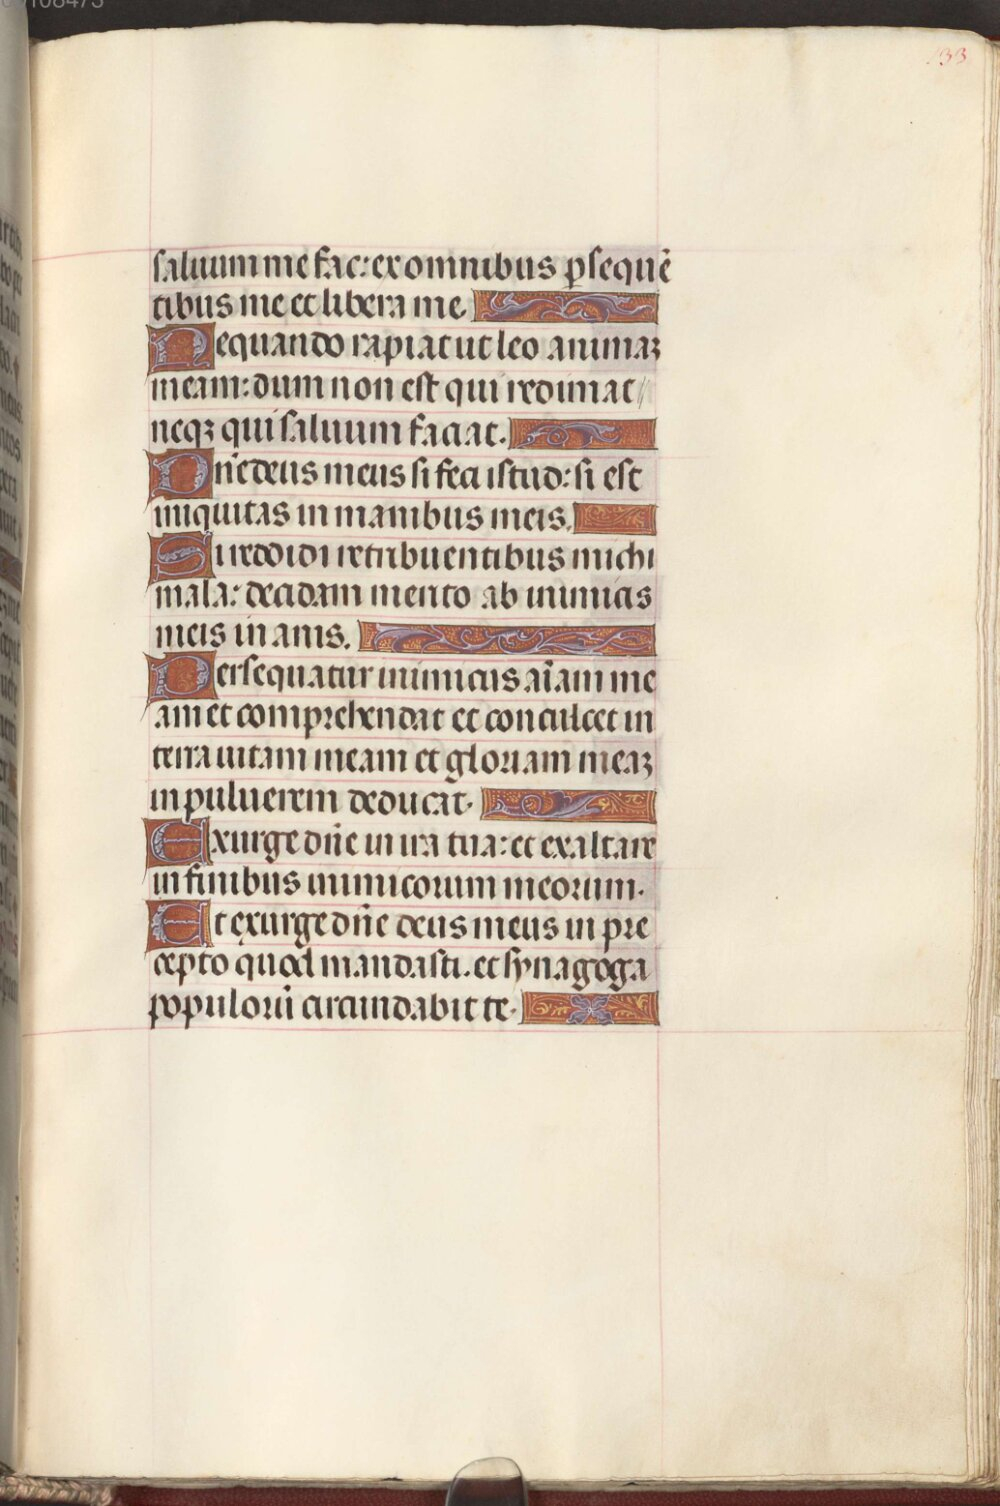 133
saluum me fac: ex omnibus ꝑsequē
tibus me et libera me.
Nequando rapiat ut leo animaꝫ
meam: dum non est qui redimat
neqꝫ qui saluum faciat.
Dn̄e deus meus si feci istud: si est
iniquitas in manibus meis.
Si reddidi retribuentibus michi
mala: decidam merito ab inimicis
meis inanis.
Persequatur inimicus aīam me
am et comprehendat et conculcet in
terra uitam meam et gloriam meaꝫ
in puluerem deducat.
Exurge dn̄e in ira tua: et exaltare
in finibus inimicorum meorum.
Et exurge dn̄e deus meus in pre
cepto quod mandasti. et synagoga
populorū circundabit te.